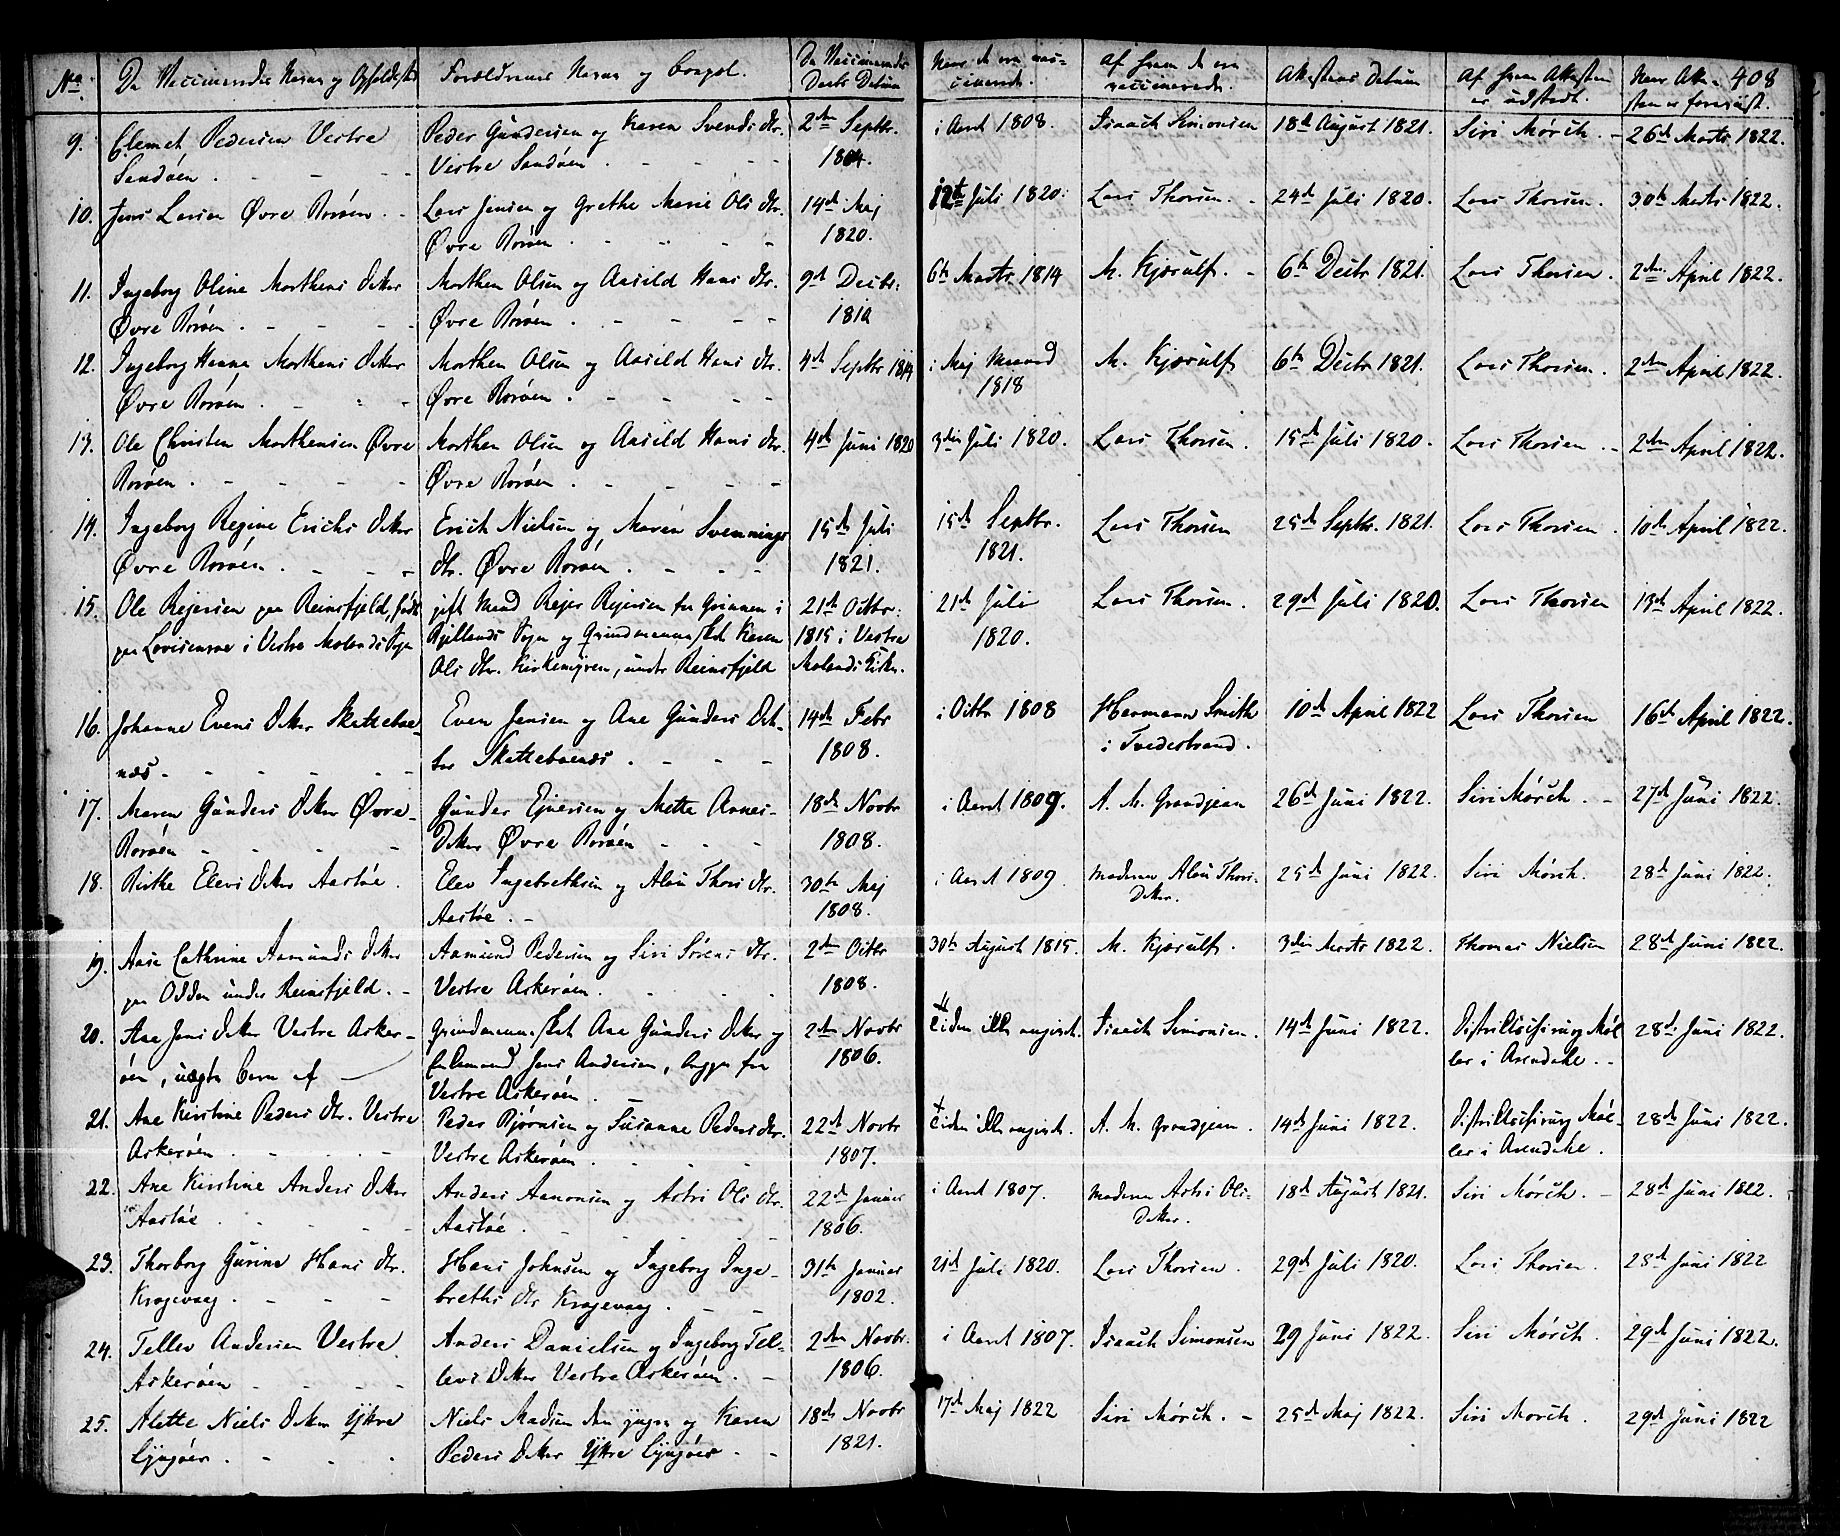 No. De Vaccineredes Navne og Opholdssted Forældrenes Navne og Bopæl. De Vaccineredes Daabs Datum Naar de ere vaccinerede. Af hvem de ere vaccinerede. Attestens Datum Af hvem Attesten er udstedt. Naar Attesten er foreviist. 408
9. Clemet Pedersen Vestre Peder Gundersen og Karen Svends dtr. 2den Septbr. i Aaret 1808. Isaach Simonsen 18de August 1821. Siri Mörch. 26de Marts 1822.
Sandøen . - - - Vestre Sandøen . - - - 1804.
10. Jens Larsen Øvre Rorøen . - Lars Jensen og Grethe Marie Ols dtr. 14de Maj 12te Juli 1820. Lars Thorsen. - 24de Juli 1820. Lars Thorsen. 30te Marts 1822.
Øvre Rorøen . - - - 1820.
11. Ingeborg Oline Morthens Datter Morthen Olsen og Aasild Hans dtr. 9de Decbr. 6te Marts 1814 M. Kjærulf. - 6te Decbr 1821. Lars Thorsen. 2den April 1822.
Øvre Rorøen . - - - Øvre Rorøen . - - - 1810
12. Ingeborg Hanne Morthens Datter Morthen Olsen og Aasild Hans dtr. 4de Septbr 1814 i Maj Maaned M. Kjærulf 6te Decbr 1821. Lars Thorsen. 2den April 1822.
Øvre Rorøen . - - - Øvre Rorøen . - - - 1818
13. Ole Christen Morthensen Øvre Morthen Olsen og Aasild Hans dtr. 4de Juni 1820 3die Juli 1820. Lars Thorsen. 15de Juli 1820. Lars Thorsen. - 2den April 1822.
Rorøen . - - - Øvre Rorøen . - - -
14. Ingeborg Regine Erichs Datter Erich Nielsen og Maren Svennings 15de Juli 15de Septbr. Lars Thorsen 25de Septbr. 1821. Lars Thorsen. 10de April 1822.
Øvre Rorøen . - - - dtr. Øvre Rorøen . - - - 1821. 1821.
15. Ole Rejersen paa Reinsfjeld, født gift Mand Rejer Rejersen fra Grinnen i 21de Octbr. 21de Juli Lars Thorsen. 29de Juli 1820. Lars Thorsen 13de April 1822.
paa Lovisenroe i Vestre Molands Sogn Kjellands Sogn og Qvindemennesket Karen 1815 i Vestre 1820.
Ols dtr. Kirkemyren, under Reinsfjeld Molands Kirke.
16. Johanne Evens Datter Skattebae- Even Jensen og Ane Gunders Dat- 14de Febr i Octbr 1808 Hermann Smith 10de April 1822 Lars Thorsen 16de April 1822.
næs . - - - - ter Skattebaenæs . - - - 1808. i Tvedestrand.
17. Maren Gunders Datter Øvre Gunder Ejversen og Mette Annes- 18de Novbr i Aaret 1809. A. M. Grandjean 26de Juni 1822. Siri Mörch. - 27de Juni 1822.
Rorøen - - - - Datter Øvre Rorøen - - - 1808.
18. Birthe Elevs Datter Aastøe . Elev Ingebrethsen og Alou Thors dtr. 30te Maj i Aaret 1809. Moderen Alou Thors- 25de Juni 1822. Siri Mörch. 28de Juni 1822.
Aastøe . - 1808. Datter.
19. Aase Cathrine Aamunds Datter Aamund Pedersen og Siri Sørens dtr. 2den Octbr 30te August 1815. M. Kjærulf. 3die Marts 1822. Thomas Nielsen 28de Juni 1822.
paa Odden under Reinsfjeld. - Vestre Askerøen. 1808.
20. Ane Jens Datter Vestre Asker- Qvindemennesket Ane Gunders Datter og 2den Novbr Tiden ikke angivet. Isaach Simonsen. 14de Juni 1822. Districtschirurg Møl- 28de Juni 1822.
øen, uægte Barn af Enkemand Jens Andersen, begge fra 1806. ler i Arendahl. -
Vestre Askerøen .
21. Ane Kirstine Peders dtr. Vestre Peder Bjørnsen og Susanne Pedersdtr. 22de Novbr Tiden ikke angivet. A. M. Grandjean. 14de Juni 1822. Districtschirurg Møl- 28de Juni 1822.
Askerøen . - - - Vestre Askerøen . 1807. ler i Arendahl.
22. Ane Kirstine Anders Datter Anders Aanonsen og Astri Ols dtr. 22de Januar i Aaret 1807. Moderen Astri Ols- 18de August 1821. Siri Mörch. - 28de Juni 1822.
Aastøe . - - - Aastøe . 1806. Datter.
23. Thorborg Gurine Hans dtr. Hans Johnsen og Ingeborg Inge- 31te Januar 21de Juli 1820. Lars Thorsen. 29de Juli 1820. Lars Thorsen. 28de Juni 1822
Kragevaag . - - - breths dtr Kragevaag . - - 1802.
24. Tellev Andersen Vestre Anders Danielsen og Ingeborg Tel- 2den Novbr. i Aaret 1807. Isaach Simonsen 29 Juni 1822. Siri Mörch. 29de Juni 1822.
Askerøen - - - - levs Datter Vestre Askerøen. - 1806.
25. Alette Niels Datter Yttre Niels Madsen den yngre og Karen 18de Novbr 17de Maj 1822 Siri Mörch. - 25de Maj 1822. Siri Mörch. 29de Juni 1822
Lyngøer . - - - Peders Datter Yttre Lyngøer - - 1821.